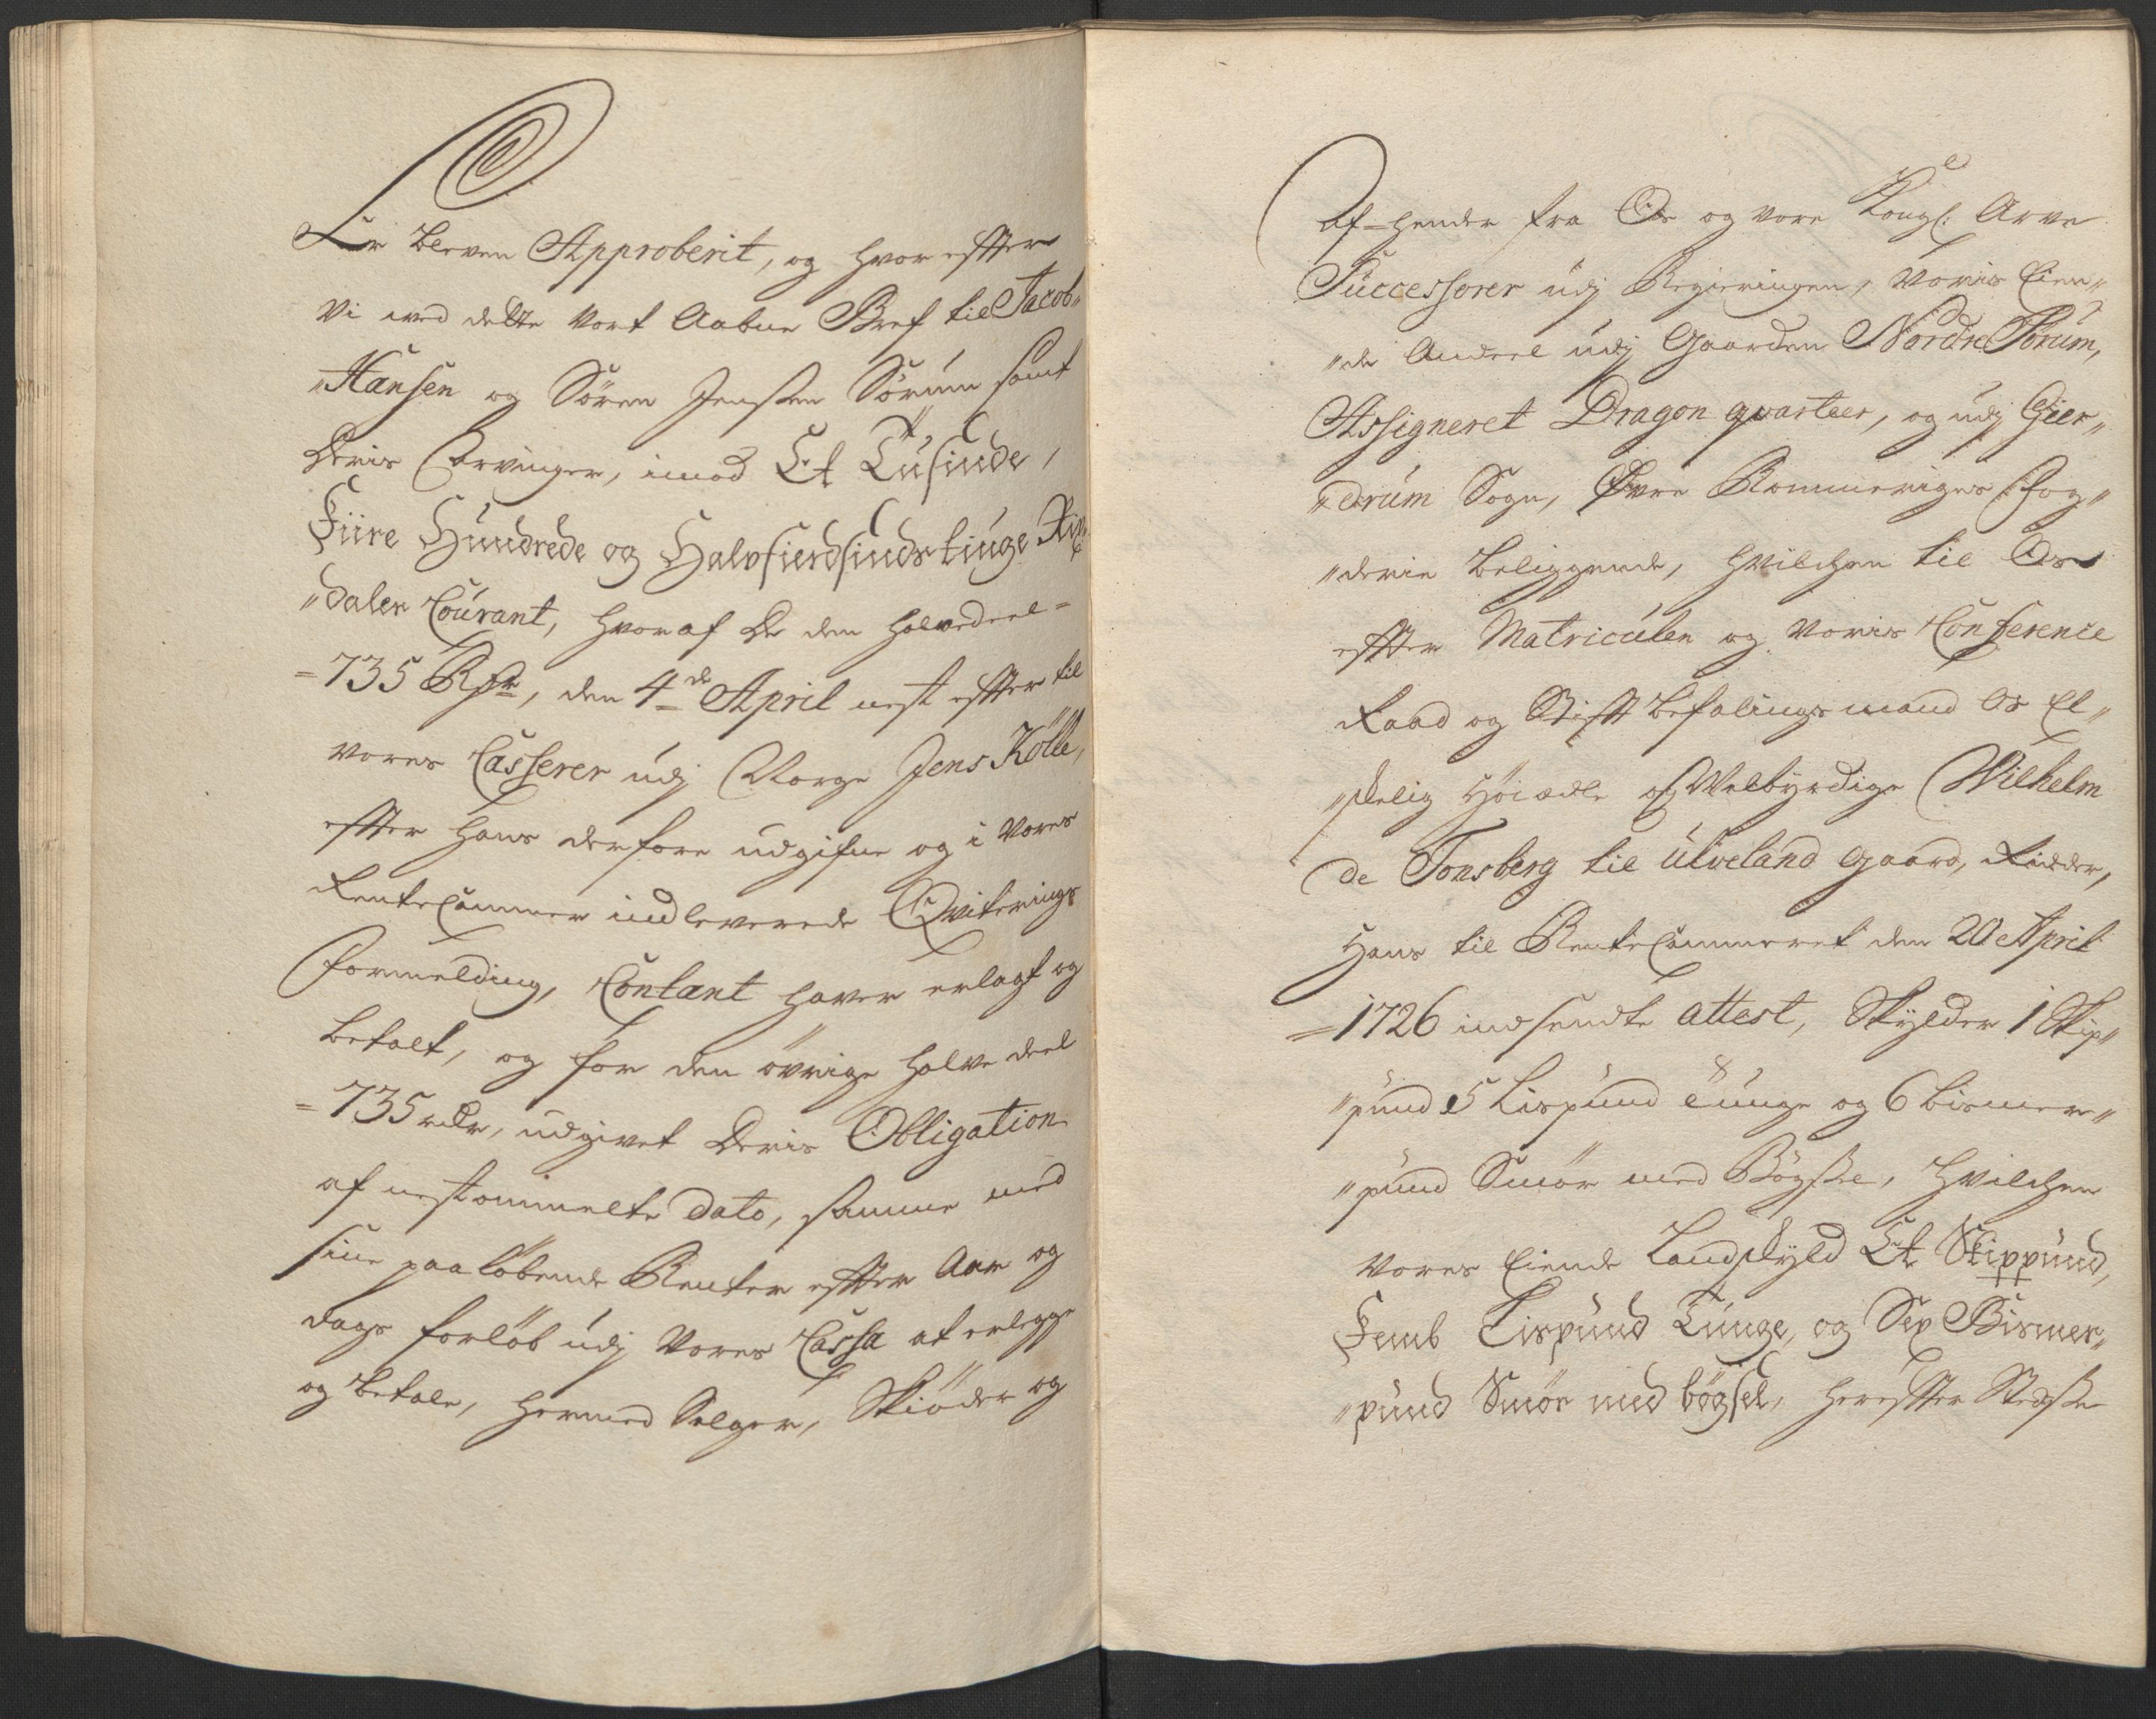 Er bleven Approberit, og hvor effter
Vi med dette Vort Aabne Bref til Jacob
"Hansen og Sören Jenssen Sörum samt
Deris Arvinger, imod Et Tusinde,
Fiire Hundrede og Halvfierdsindstiuge Rix
"daler Courant, hvoraf De den halvedeel=
=735 Rdr, den 4de April nest effter til
Vores Casserer udj Norge Jens Kölle,
effter Hans derfore udgifne og i Vores
RenteCammer indleverede Qviterings
Formelding, Contant haver erlagt og
betalt, og for den övrige halve deel
=735 rdr, udgivet Deris Obligation
af nestommelte dato, samme med
sine paalöbende Renter effter Aar og
dags forlöb udj Vores Cassa at erlegge
og betale, hermed Selger, Skiöder og
Af=hender fra Os og vore Kongl: Arve
Successorer udj Regieringen, Voris Eien"
"de Andeel udj Gaarden Nordre Sörum,
Assigneret Dragon qvarteer, og udj Gier"
"drum Sogn, Övre Rommeriges Fog"
"derie beliggende, hvilchen til Os
effter Matriculen og Voris Conference
Raad og Stift befalingsmand Os El"
"skelig Höiædle og Welbyrdige Wilhelm
de Tonsberg til Ulveland gaard, Ridder,
Hans til RenteCammeret den 20 April
=1726 indsendte attest, Skylder 1 Skip"
"pund 5 Lispund Tunge og 6 bismer"
"pund Smör med Bögsel, hvilchen
Vores Eiende Landskyld Et Skippund,
Femb Lispund Tunge, og Sex Bismer"
"pund Smör med bögsel, hereffter